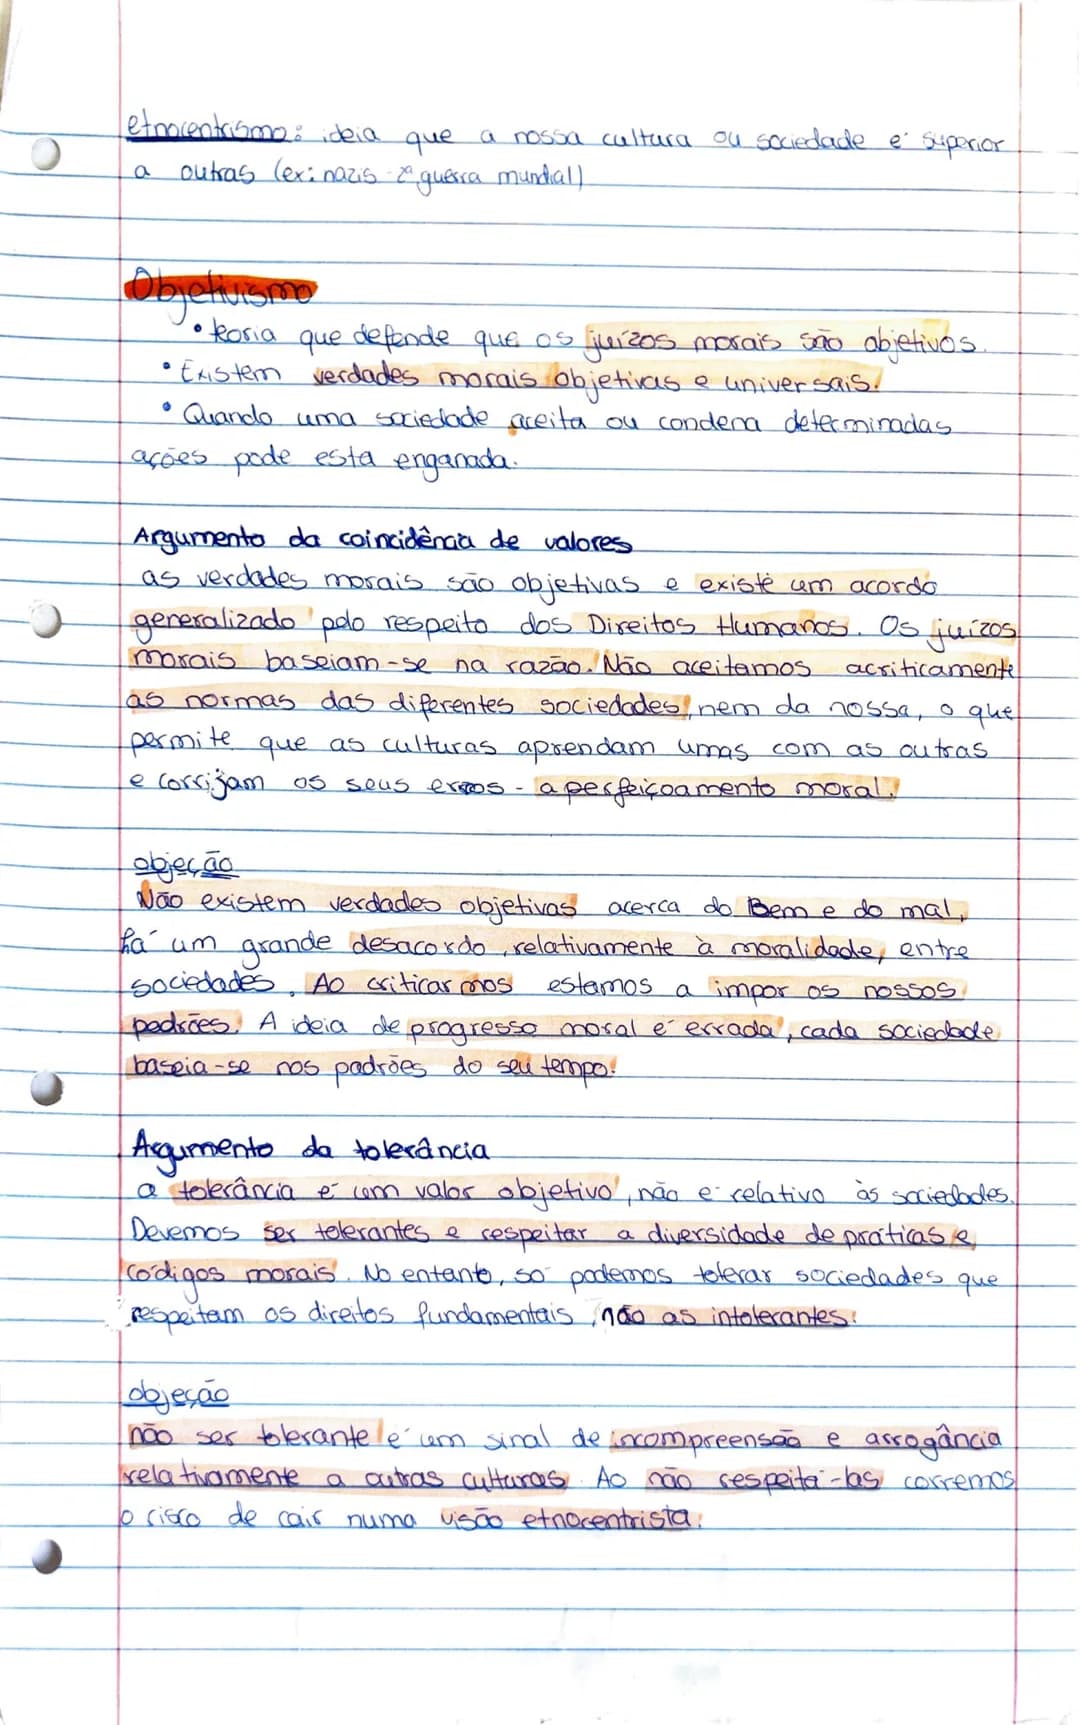 etnocentrismo: ideia que a nossa cultura ou sociedade é superior
a outras (ex: nazis - 2ª guerra mundial)
Objetivismo
• teoria que defende que os juízos morais são objetivos.
• Existem verdades morais objetivas e universais.
• Quando uma sociedade aceita ou condena determinadas
ações pode esta enganada.
Argumento da coincidência de valores
as verdades morais são objetivas e existe um acordo
generalizado pelo respeito dos Direitos Humanos. Os juízos
morais baseiam-se na razão. Não aceitamos acriticamente
as normas das diferentes sociedades, nem da nossa, o que
permite que as culturas aprendam umas com as outras
e corrijam os seus erros - aperfeiçoamento moral.
objeção
Não existem verdades objetivas acerca do Bem e do mal,
há um grande desacordo, relativamente à moralidade, entre
sociedades. Ao criticarmos estamos a impor os nossos
padrões. A ideia de progresso moral é errada, cada sociedade
baseia-se nos padrões do seu tempo.
Argumento da tolerância
a tolerância é um valor objetivo, não é relativo às sociedades.
Devemos ser tolerantes e respeitar a diversidade de práticas e
códigos morais. No entanto, só podemos tolerar sociedades que
respeitam os direitos fundamentais, não as intolerantes.
objeção
não ser tolerante é um sinal de incompreensão e arrogância
relativamente a outras culturas. Ao não respeitá-las corremos
o risco de cair numa visão etnocentrista.